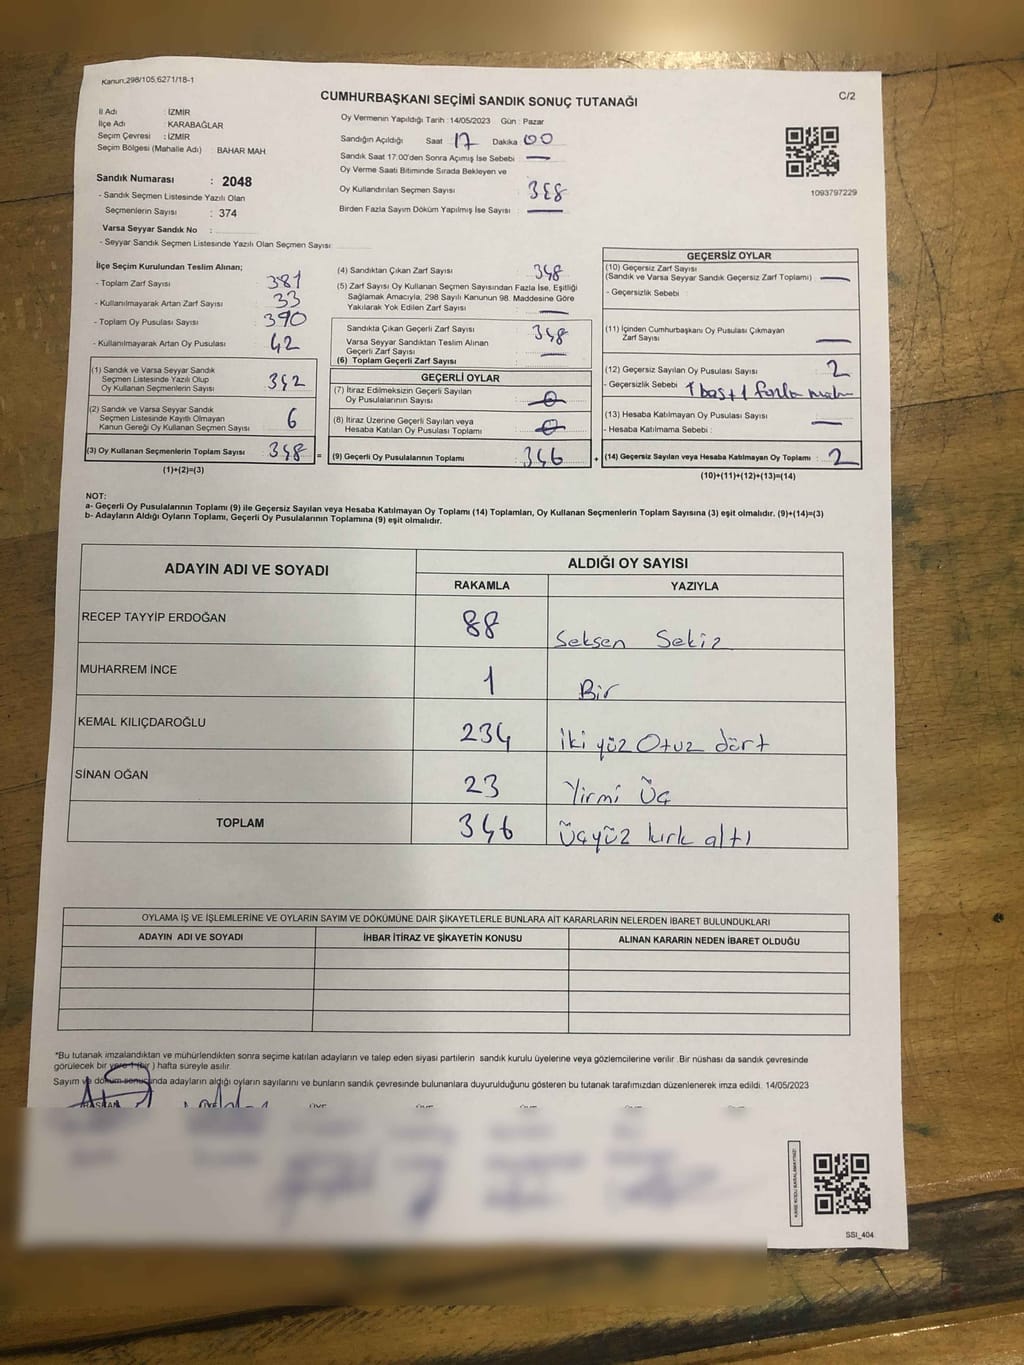 Kanun.298/105,6271/18-1
CUMHURBAŞKANI SEÇİMİ SANDIK SONUÇ TUTANAĞI
C/2
İl Adı : İZMİR
İlçe Adı : KARABAĞLAR
Seçim Çevresi : İZMİR
Seçim Bölgesi (Mahalle Adı) : BAHAR MAH
Oy Vermenin Yapıldığı Tarih : 14/05/2023 Gün : Pazar
Sandığın Açıldığı Saat 17 Dakika 00
Sandık Saat 17:00'den Sonra Açımış İse Sebebi : —
Oy Verme Saati Bitiminde Sırada Bekleyen ve
Oy Kullandırılan Seçmen Sayısı : 348
Birden Fazla Sayım Döküm Yapılmış İse Sayısı : —
1093797229
Sandık Numarası : 2048
- Sandık Seçmen Listesinde Yazılı Olan
Seçmenlerin Sayısı : 374
Varsa Seyyar Sandık No :
- Seyyar Sandık Seçmen Listesinde Yazılı Olan Seçmen Sayısı:
İlçe Seçim Kurulundan Teslim Alınan;
- Toplam Zarf Sayısı : 381
- Kullanılmayarak Artan Zarf Sayısı : 33
- Toplam Oy Pusulası Sayısı : 390
- Kullanılmayarak Artan Oy Pusulası : 42
(1) Sandık ve Varsa Seyyar Sandık
Seçmen Listesinde Yazılı Olup
Oy Kullanan Seçmenlerin Sayısı : 342
(2) Sandık ve Varsa Seyyar Sandık
Seçmen Listesinde Kayıtlı Olmayan
Kanun Gereği Oy Kullanan Seçmen Sayısı : 6
(3) Oy Kullanan Seçmenlerin Toplam Sayısı : 348 =
(1)+(2)=(3)
(4) Sandıktan Çıkan Zarf Sayısı : 348
(5) Zarf Sayısı Oy Kullanan Seçmen Sayısından Fazla İse, Eşitliği
Sağlamak Amacıyla, 298 Sayılı Kanunun 98. Maddesine Göre
Yakılarak Yok Edilen Zarf Sayısı : —
Sandıkta Çıkan Geçerli Zarf Sayısı : 348
Varsa Seyyar Sandıktan Teslim Alınan
Geçerli Zarf Sayısı : —
(6) Toplam Geçerli Zarf Sayısı :
GEÇERLİ OYLAR
(7) İtiraz Edilmeksizin Geçerli Sayılan
Oy Pusulalarının Sayısı : 0
(8) İtiraz Üzerine Geçerli Sayılan veya
Hesaba Katılan Oy Pusulası Toplamı : 0
(9) Geçerli Oy Pusulalarının Toplamı : 346 +
GEÇERSİZ OYLAR
(10) Geçersiz Zarf Sayısı
(Sandık ve Varsa Seyyar Sandık Geçersiz Zarf Toplamı) : —
- Geçersizlik Sebebi :
(11) İçinden Cumhurbaşkanı Oy Pusulası Çıkmayan
Zarf Sayısı : —
(12) Geçersiz Sayılan Oy Pusulası Sayısı : 2
- Geçersizlik Sebebi : 1 boş + 1 fazla
(13) Hesaba Katılmayan Oy Pusulası Sayısı : —
- Hesaba Katılmama Sebebi :
(14) Geçersiz Sayılan veya Hesaba Katılmayan Oy Toplamı : 2
(10)+(11)+(12)+(13)=(14)
NOT:
a- Geçerli Oy Pusulalarının Toplamı (9) ile Geçersiz Sayılan veya Hesaba Katılmayan Oy Toplamı (14) Toplamları, Oy Kullanan Seçmenlerin Toplam Sayısına (3) eşit olmalıdır. (9)+(14)=(3)
b- Adayların Aldığı Oyların Toplamı, Geçerli Oy Pusulalarının Toplamına (9) eşit olmalıdır.
ADAYIN ADI VE SOYADI ALDIĞI OY SAYISI
RAKAMLA YAZIYLA
RECEP TAYYİP ERDOĞAN 88 Seksen Sekiz
MUHARREM İNCE 1 Bir
KEMAL KILIÇDAROĞLU 234 İki yüz Otuz dört
SİNAN OĞAN 23 Yirmi Üç
TOPLAM 346 Üçyüz kırk altı
OYLAMA İŞ VE İŞLEMLERİNE VE OYLARIN SAYIM VE DÖKÜMÜNE DAİR ŞİKAYETLERLE BUNLARA AİT KARARLARIN NELERDEN İBARET BULUNDUKLARI
ADAYIN ADI VE SOYADI İHBAR İTİRAZ VE ŞİKAYETİN KONUSU ALINAN KARARIN NEDEN İBARET OLDUĞU
*Bu tutanak imzalandıktan ve mühürlendikten sonra seçime katılan adayların ve talep eden siyasi partilerin sandık kurulu üyelerine veya gözlemcilerine verilir .Bir nüshası da sandık çevresinde
görülecek bir yere 1 (bir ) hafta süreyle asılır.
Sayım ve döküm sonucunda adayların aldığı oyların sayılarını ve bunların sandık çevresinde bulunanlara duyurulduğunu gösteren bu tutanak tarafımızdan düzenlenerek imza edildi. 14/05/2023
SSI_404